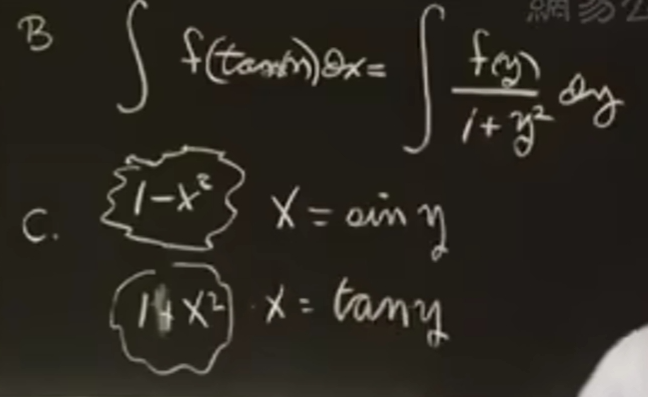 網易公
B ∫ f(tan(x))dx = ∫ f(y)/(1+y²) dy
C. 1-x² x = sin y
1+x² x = tan y